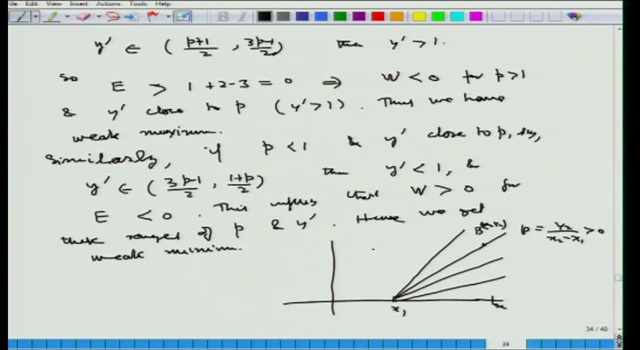 File Edit View Insert Actions Tools Help
y' ∈ ( p+1/2 , 3p-1/2 ) then y' > 1.
so E > 1+2-3 = 0 ⇒ W < 0 for p>1
& y' close to p (y'>1). Thus we have
weak maximum.
Similarly, if p < 1 & y' close to p, say,
y' ∈ ( 3p-1/2 , 1+p/2 ) then y' < 1, &
E < 0. This implies that W > 0 for
these ranges of p & y'. Hence we get
weak minimum.
p = y₂/x₂-x₁ > 0
x₁
34 / 40
34